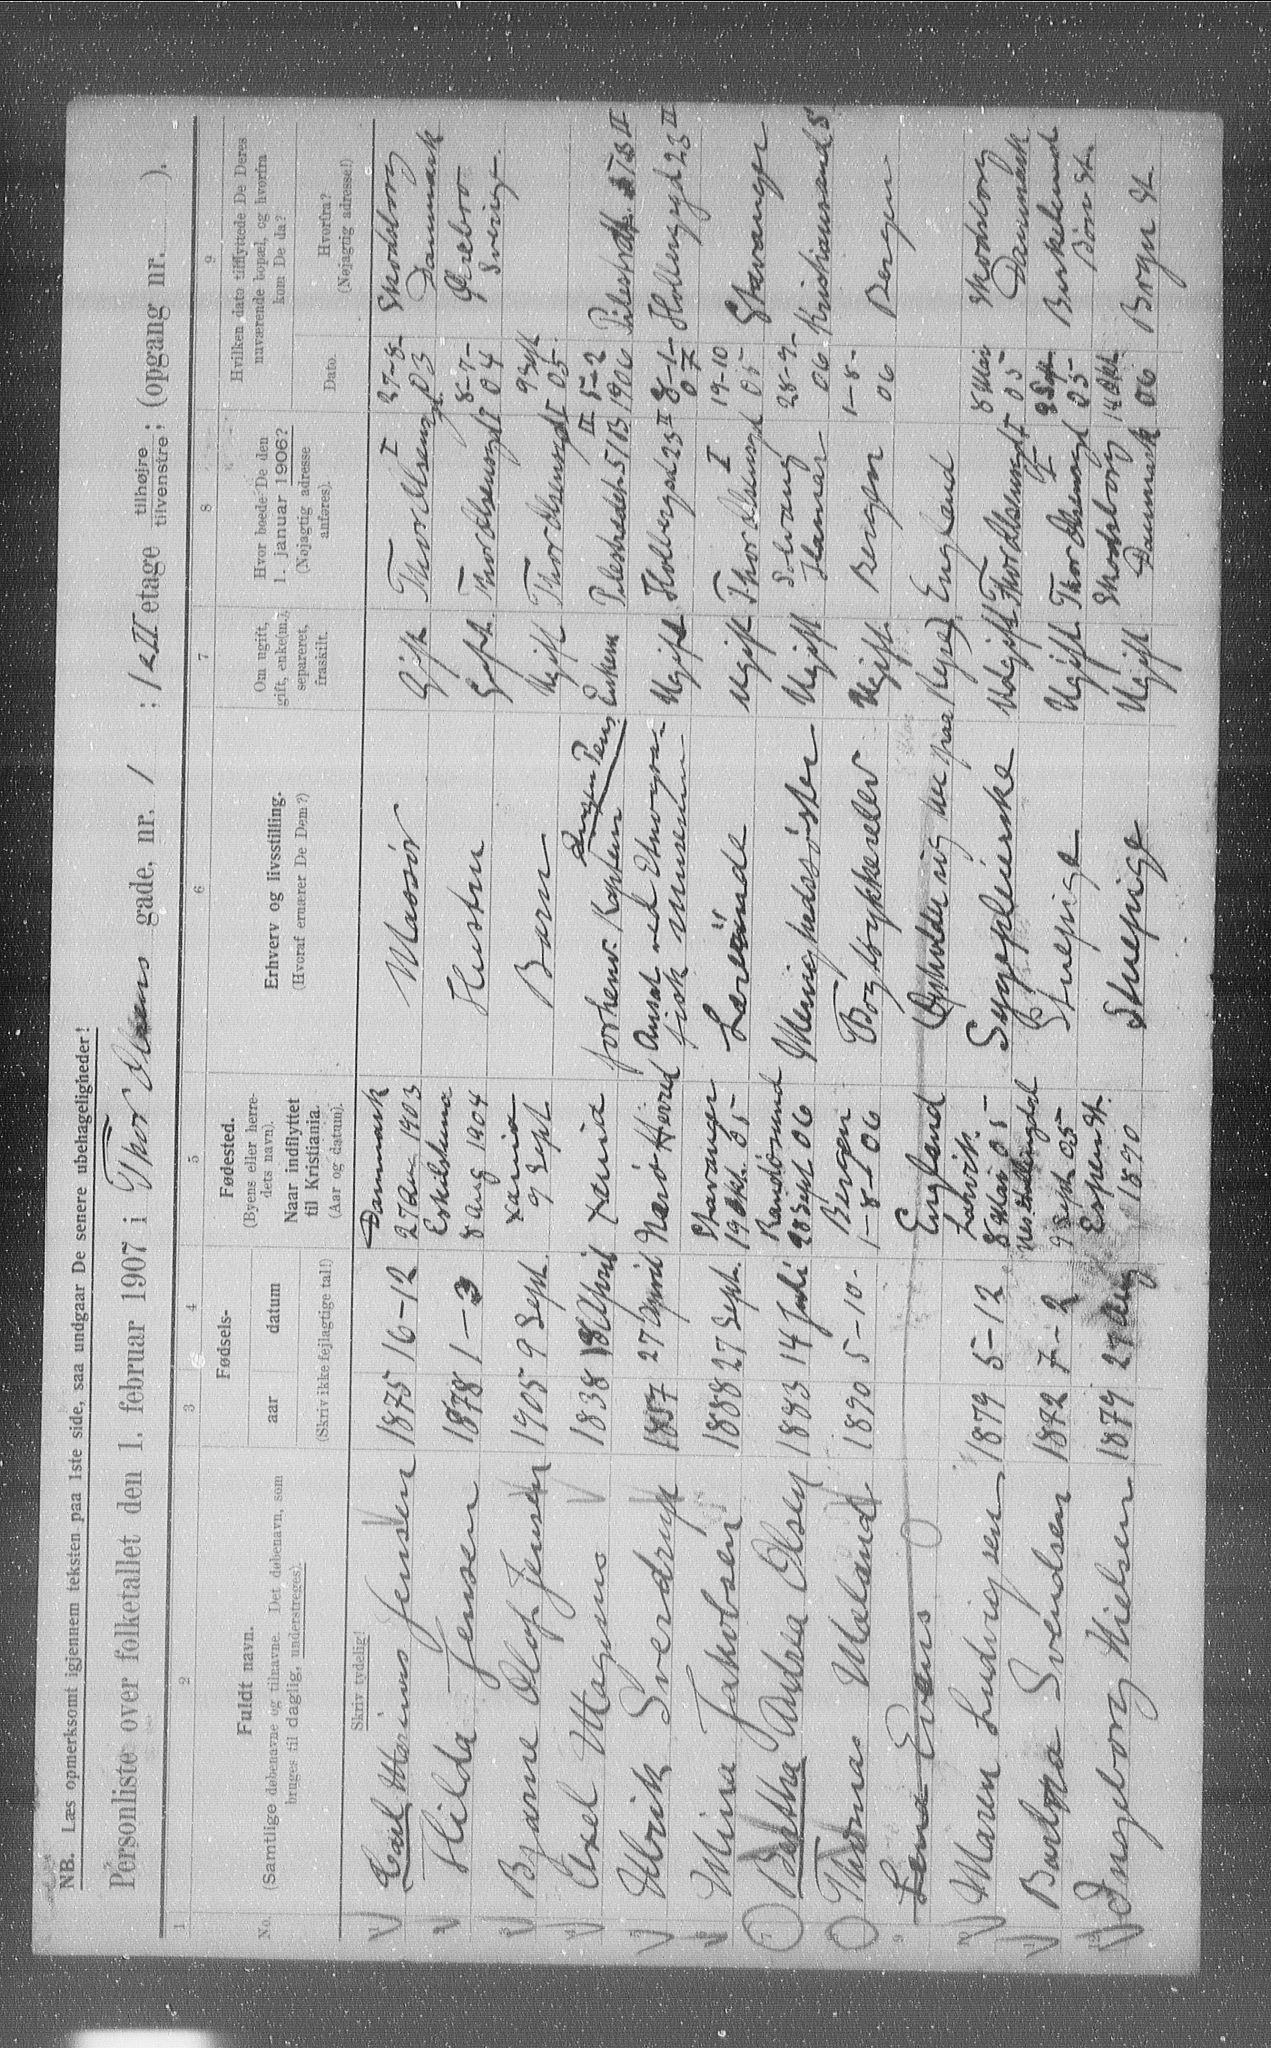 NB. Læs opmerksomt igjennem teksten paa 1ste side, saa undgaar De senere ubehageligheder!
Personliste over folketallet den 1. februar 1907 i Thor Olsens gade, nr. 1 ; 1 a II etage tilhøjre tilvenstre ; (opgang nr. ).
1 2 3 4 5 6 7 8 9
No.
Fuldt navn.
(Samtlige døbenavne og tilnavne. Det døbenavn, som
bruges til daglig, understreges).
Fødsels-
aar datum
(Skriv ikke fejlagtige tal!)
Fødested.
(Byens eller herre-
dets navn).
Naar indflyttet
til Kristiania.
(Aar og datum).
Erhverv og livsstilling.
(Hvoraf ernærer De Dem?)
Om ugift,
gift, enke(m.),
separeret,
fraskilt.
Hvor boede De den
1. januar 1906?
(Nøjagtig adresse
anføres).
Hvilken dato tilflyttede De Deres
nuværende bopæl, og hvorfra
kom De da?
Dato.
Hvorfra?
(Nøjagtig adresse!)
Skriv tydelig!
1 Carl Marinus Jensen 1875 16-12 Danmark 27 Aug 1903 Massör Gift Thor Olsensgd. 1 I 27-8-03 Skodsborg Danmark
2 Hilda Jensen 1878 1-3 Eskilstuna 8 Aug 1904 Hustru Gift. Thor Olsensgd I 8-7-04 Ørebro Sverige.
3 Bjarne Olof Jensen 1905 9 Sept. Xania 9 Sept. Barn Ugift Thor Olsensgd I 9 Sept 05
4 Axel Magnus 1838 18 April Xania forhenv. Kaptein Pens. Enkem Pilestrædet 5/13 III 5-2 1906 Pilestrædet 13 II
5 Ulrik Sverdrup 1857 27 April Nærö Herred Ansat ved Etnografisk Museum Ugift Holbergsgd 23 II 8-1-07 Holbergsgd 23 II
6 Mina Jakobsen 1888 27 Sept. Stavanger 19 Okt. 05 Lærerinde Ugift Thor Olsensgd I 19-10 05 Stavanger
7 Bertha Andrea Olsen 1883 14 Juli Randösund 28 Sept 06 Menighedssöster Ugift Solvang Hamar 28-9-06 Kristianssand S
8 Thomas Maland 1890 5-10- Bergen 1-8-06 Bogtrykkerelev Ugift. Bergen 1-8-06 Bergen
9 Lena Evans England (Opholder sig her paa Rejse) England
10 Maren Ludvigsen 1879 5-12 Larvik. 8 Mai 05- Sygepleierske Ugift Thor Olsensgd I 8 Mai 05 Skodsborg Danmark
11 Svendsen 1882 7-2 9 Sept 05 Stuepige Ugift. Thor Olsensgd I 9 Sept. 05- Birkelund
12 Ingeborg Nielsen 1879 27 Aug Espen St. 1890 Stuepige Ugift Skodsborg Danmark 14 Okt. 06 Bryn St.